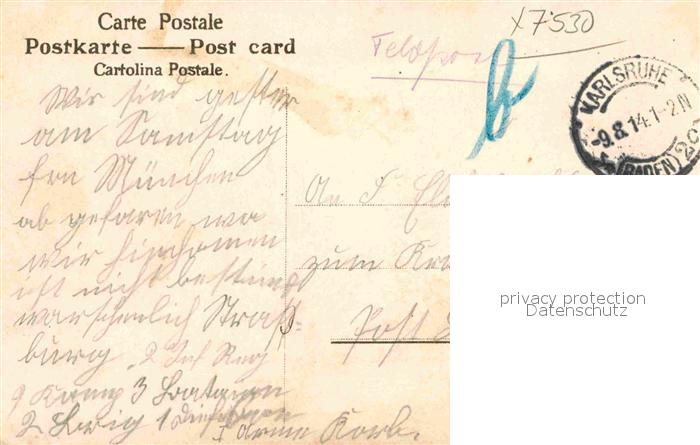 Carte Postale
Postkarte — Post card
Cartolina Postale.
X7530
Feldpost
b
KARLSRUHE
-9.8.14.1-2N
(BADEN) 2c
Wir sind gester
am Samstag
fon München
ab gefaren wo
wir hinkomen
ist nicht bestimt
warschenlich Straß=
burg. 2 Inf Reg
9 Komp 3 Batagon
2 Brig 1
I Armee Korb.
An F
zum
Post
privacy protection
Datenschutz